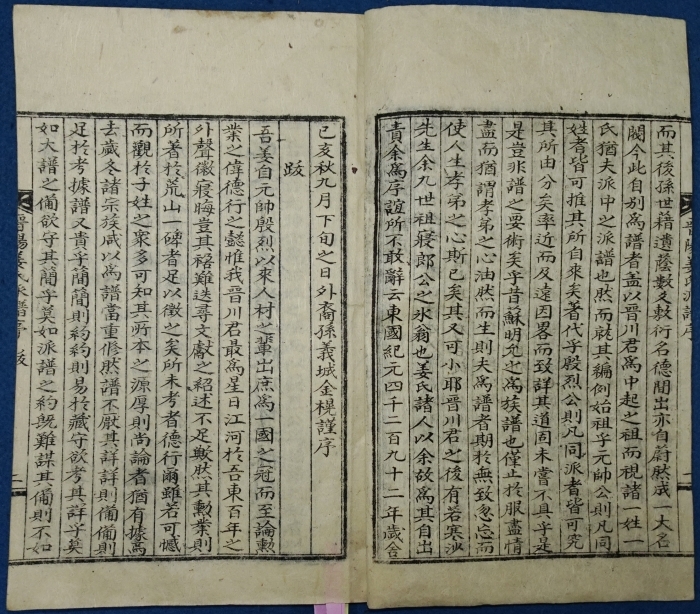 而其後孫世籍遺蔭數文敷衍名德間出亦自蔚然成一大名
閥今此自別爲譜者盖以晉川君爲中起之祖而視諸一姓一
氏猶夫派中之派譜也然而就其編例始祖乎元帥公則凡同
姓者皆可推其所自來矣者代乎殷烈公則凡同派者皆可究
其所由分矣率近而及遠因畧而致詳其道固未嘗不具乎是
是豈非譜之要術矣乎昔蘇明允之爲族譜也僅止於服盡情
盡而猶謂孝弟之心油然而生則夫爲譜者期於無致忽忘而
使人生孝弟之心斯已矣其又可小耶晉川君之後有若寒沙
先生余九世祖寢郎公之氷翁也姜氏諸人以余故爲其自出
責余爲序誼所不敢辭云東國紀元四千二百九十二年歲舍
己亥秋九月下旬之日外裔孫義城金榥謹序
跋
吾姜自元帥殷烈以來人材之輩出庶爲一國之冠而至論勳
業之偉德行之懿惟我晉川君最爲星日江河於吾東百年之
外聲徽寢晦豈其裕難迭尋文獻之紹述不足歟然其勳業則
所著於荒山一碑者足以徵之矣所未考者德行爾雖若可憾
而觀於子姓之衆多可知其所本之源厚則尚論者猶有據焉
去歲冬諸宗族咸以爲譜當重修然譜不厭其詳詳則備備則
足於考據譜又貴乎簡簡則約約則易於藏守欲考其詳乎莫
如大譜之備欲守其簡乎莫如派譜之約旣難謀其備則不如
晉陽姜氏派譜序
晉陽姜氏派譜序 跋
二